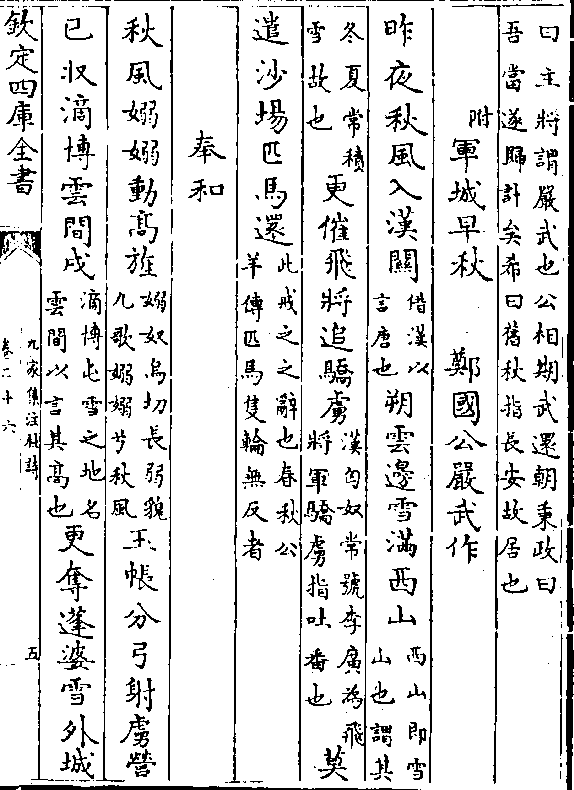 曰主將謂嚴武也公相期武還朝秉政曰
吾當遂歸計矣希曰舊秋指長安故居也
附軍城早秋 鄭國公嚴武作
昨夜秋風入漢關
借漢以
言唐也
朔雲邊雪滿西山
西山即雪
山也謂其
冬夏常積
雪故也
更催飛將追驕虜
漢匈奴常號李廣為飛
將軍驕虜指吐番也
莫
遣沙場匹馬還
此戒之之辭也春秋公
羊傳匹馬隻輪無反者
奉和
秋風嫋嫋動髙旌
嫋奴鳥切長弱貌
九歌嫋嫋兮秋風
玉帳分弓射虜營
已収滴博雲間戍
滴博屯雪之地名
雲間以言其髙也
更奪蓬婆雪外城
欽定四庫全書
九家集注杜詩
卷二十六
五